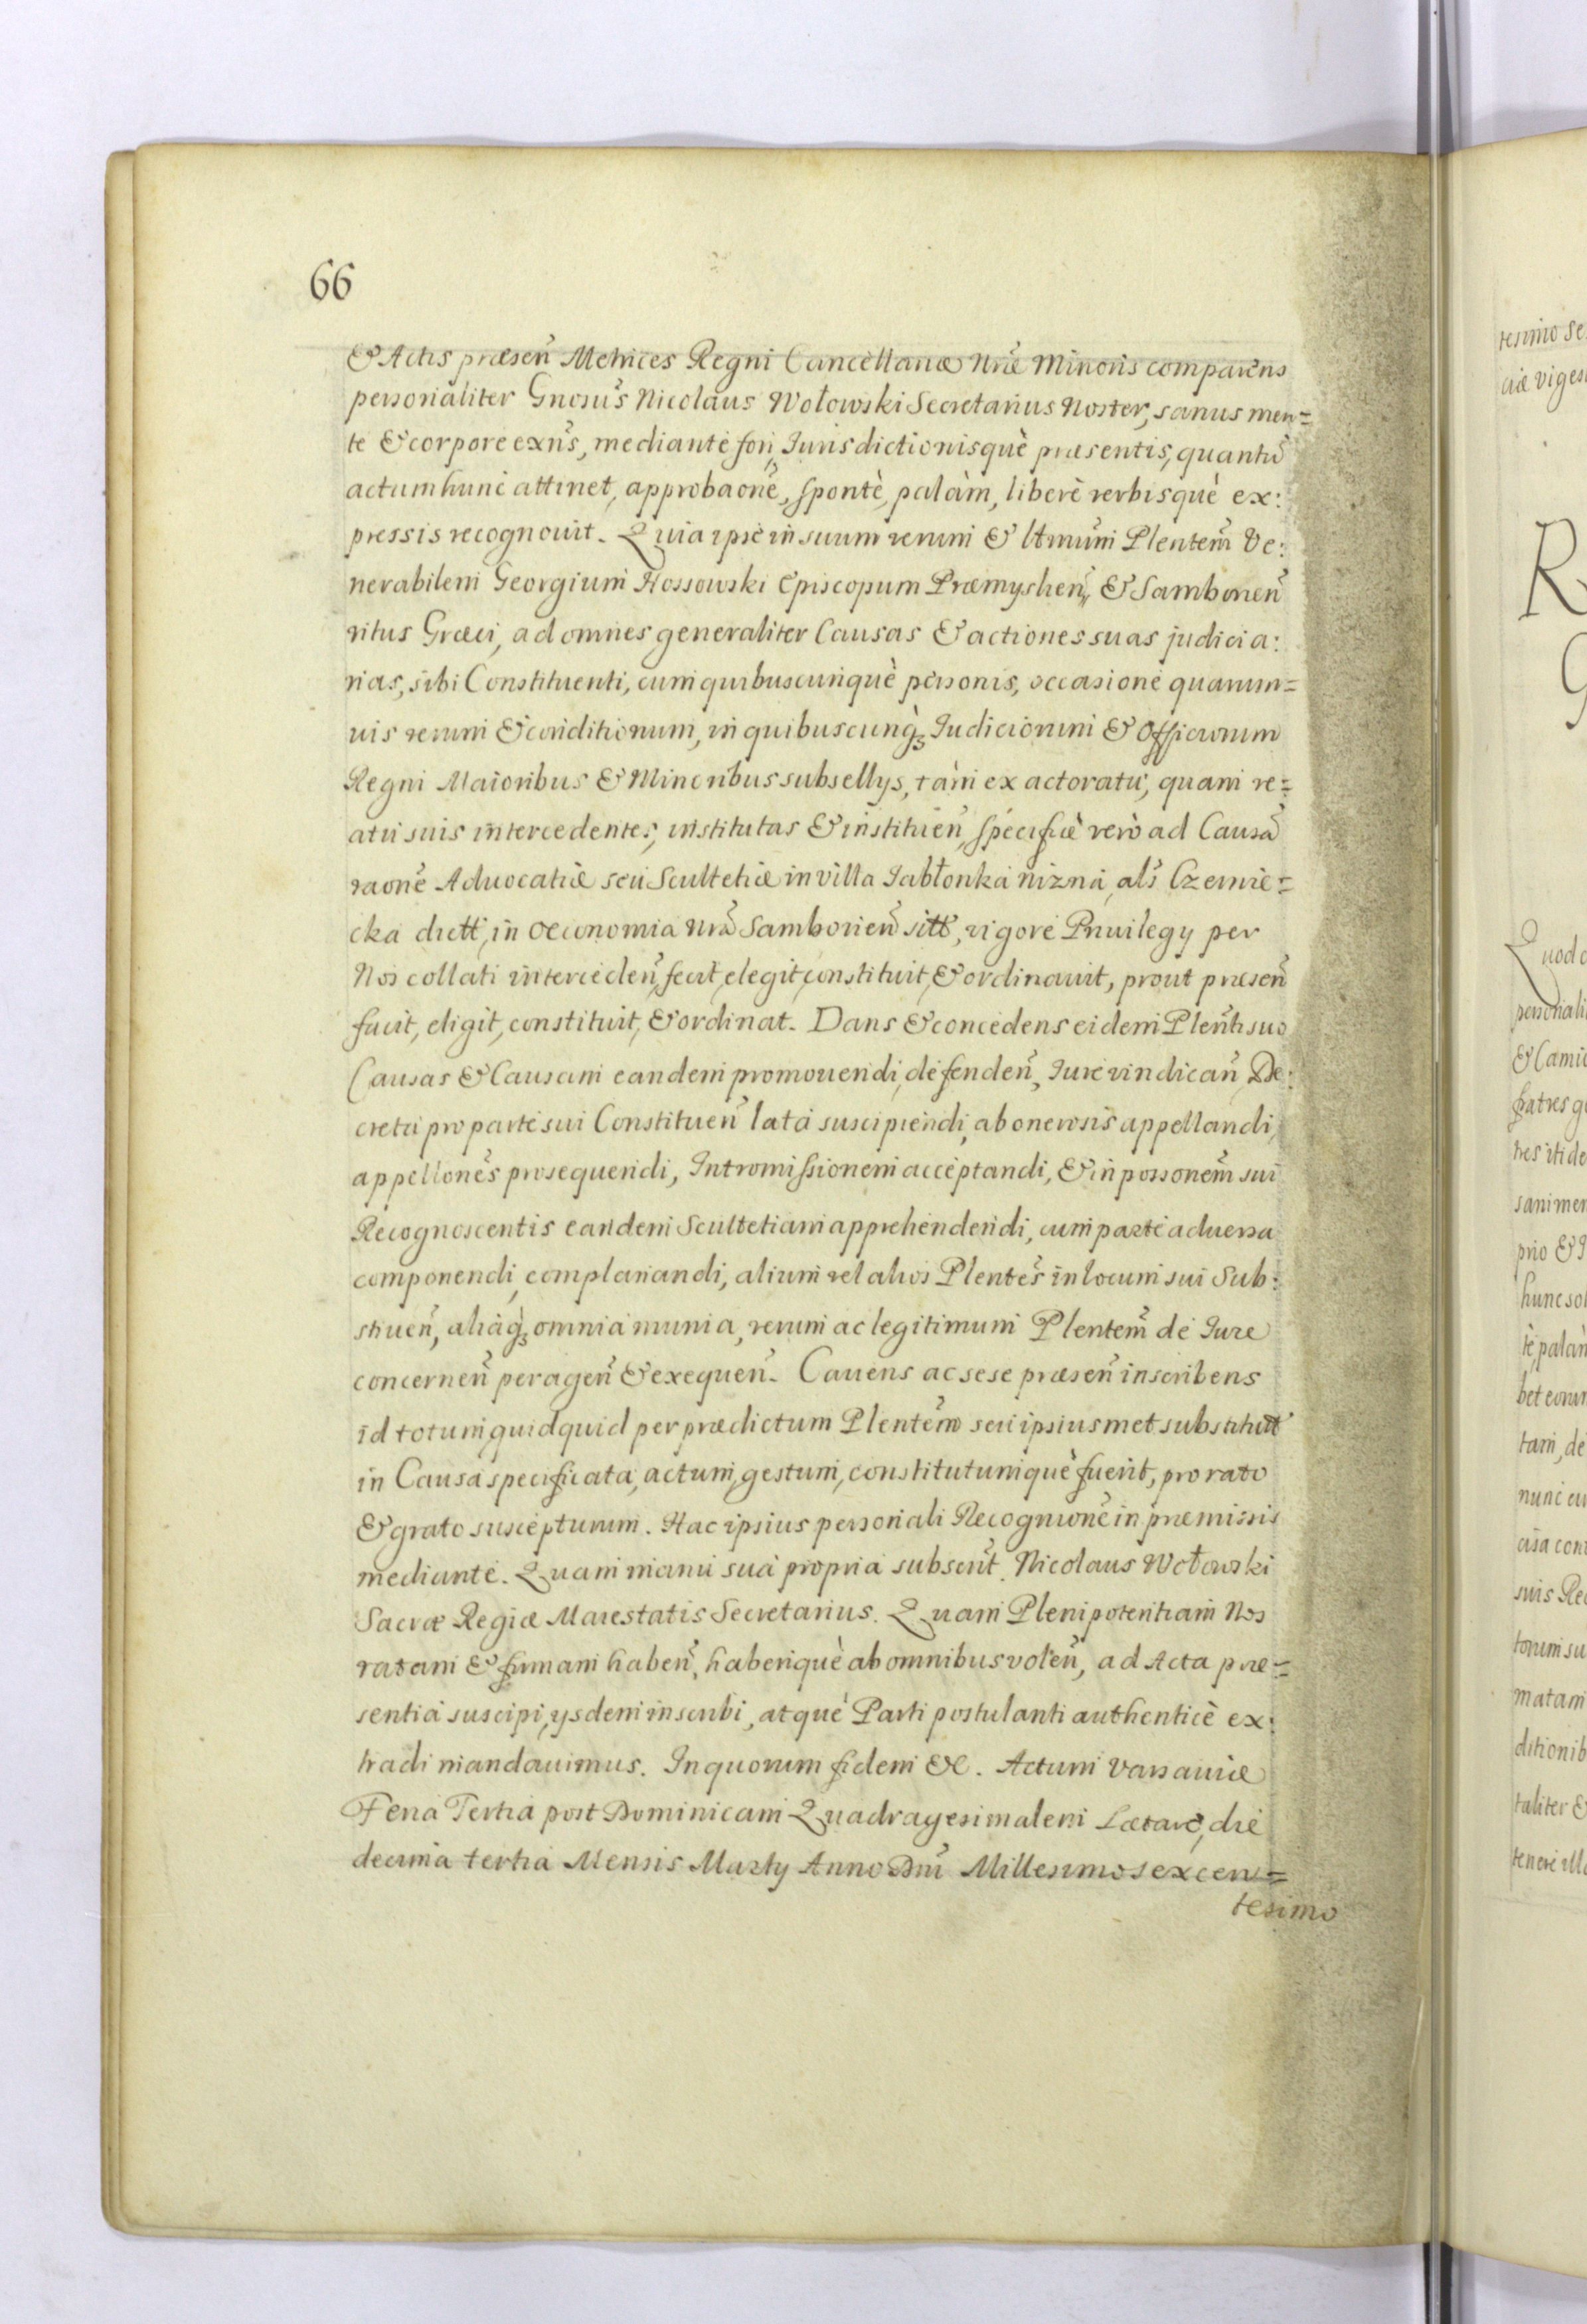 66
& Actis præsen̄ Metrices Regni Cancellariæ Nr̄æ Minoris comparens
personaliter Gnosus̄ Nicolaus Wołowski Secretarius Noster, sanus men=
te & corpore exn̄s, mediante fori, Jurisdictionisquè præsentis, quantū
actum hunc attinet, approbaōne, spontè, palàm, liberè verbisquè ex:
pressis recognouit. Quia ipse in suum verum & ltmum̄ Plentem̄ Ve:
nerabilem Georgium Hossowski Episcopum Præmyslien̄, & Samborien̄
ritus Græci, ad omnes generaliter Causas & actiones suas judicia:
rias, sibi Constituenti, cum quibuscunquè personis, occasione quarum=
uis rerum & conditionum, in quibuscunq̀ꝫ Judiciorum & Officiorum
Regni Maioribus & Minoribus subsellys, tàm ex actoratu, quam re=
atu suis intercedentes, institutas & instituen̄, specificè verò ad Causā
raōne Aduocatiæ seu Scultetiæ in villa Jabłonka nizna, als̄ Czernie=
cka dictt, in Oeconomia Nrā Samborien̄ sitt, vigore Priuilegy per
Nos collati interceden̄, fecit, elegit, constituit, & ordinauit, prout præsen̄
facit, eligit, constituit, & ordinat. Dans & concedens eidem Plen̄ti suo
Causas & Causam eandem promouendi, defenden̄, Jure vindican̄, De:
creta pro parte sui Constituen̄ lata suscipiendi, ab onerosis appellandi,
appellonēs prosequendi, Intromissionem acceptandi, & in possonem̄ sui
Recognoscentis eandem Scultetiam apprehendendi, cum parte aduersa
componendi, complanandi, alium vel alios Plentes̄ in locum sui Sub:
stiuen̄, aliaq̀ꝫ omnia munia, verum ac legitimum Plentem̄ de Jure
concernen̄ peragen̄ & exequen̄. Cauens ac sese præsen̄ inscribens
id totum, quidquid per prædictum Plentem̄ seu ipsiusmet substitutt
in Causa specificata, actum, gestum, constitutumquè fuerit, pro rato
& grato suscepturum. Hac ipsius personali Recognione in præmissis
mediante. Quam manu sua propria subscrit̄. Nicolaus Wołowski
Sacræ Regiæ Maiestatis Secretarius. Quam Plenipotentiam Nos
ratam & firmam haben̄, haberiquè ab omnibus volen̄, ad Acta præ=
sentia suscipi, ysdem inscribi, atquè Parti postulanti authenticè ex:
tradi mandauimus. In quorum fidem &c. Actum Varsauiæ
Feria Tertia post Dominicam Quadragesimalem Lætare, die
decima tertia Mensis Marty Anno Dni̅ Millesimo sexcen=
tesimo